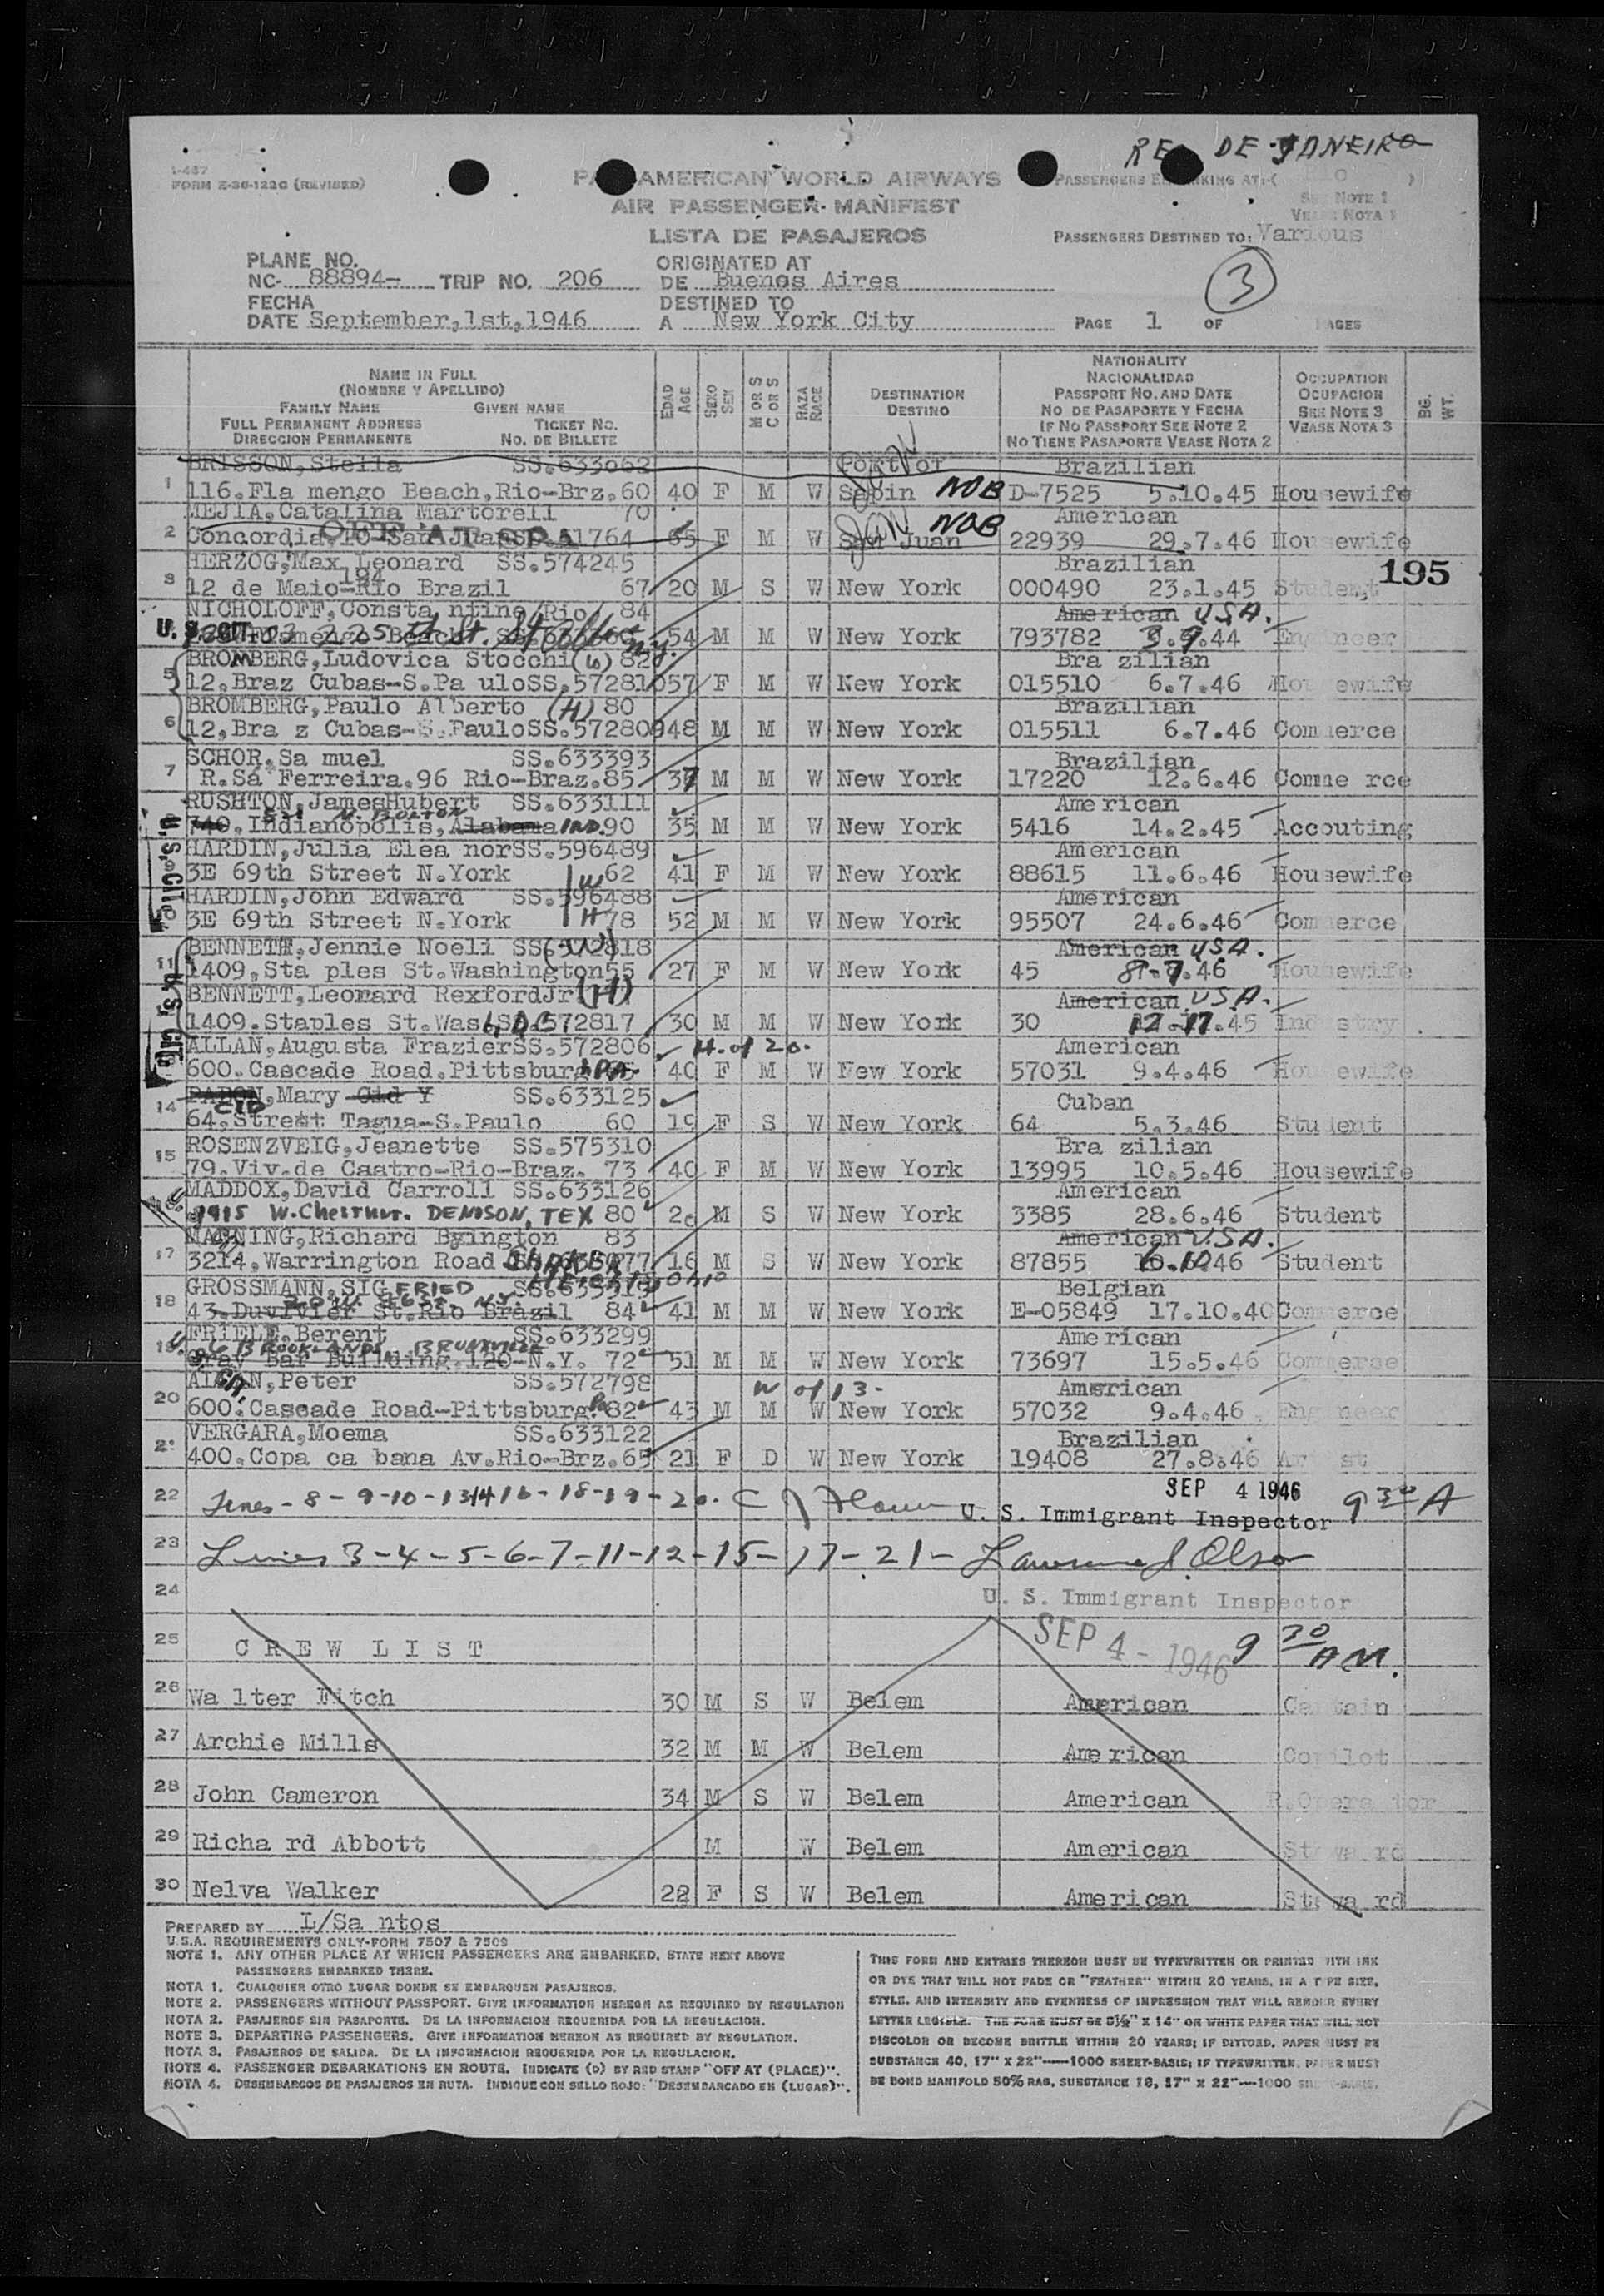 RE DE JANEIRO
I-467
FORM E-36-122G (REVISED)
AMERICAN WORLD AIRWAYS
PASSENGERS EMBARKING AT:-( )
AIR PASSENGER MANIFEST
SEE NOTE 1
VEASE NOTA 1
LISTA DE PASAJEROS
PASSENGERS DESTINED TO: Various
PLANE NO. ORIGINATED AT
NC- 88894- TRIP NO. 206 DE Buenos Aires
3
FECHA DESTINED TO
DATE September,1st,1946 A New York City PAGE 1 OF PAGES
NAME IN FULL (NOMBRE Y APELLIDO)
FAMILY NAME GIVEN NAME
FULL PERMANENT ADDRESS TICKET NO.
DIRECCION PERMANENTE NO. DE BILLETE
EDAD AGE
SEXO SEX
M OR S C OR S
RAZA RACE
DESTINATION DESTINO
NATIONALITY NACIONALIDAD
PASSPORT NO. AND DATE
NO DE PASAPORTE Y FECHA
IF NO PASSPORT SEE NOTE 2
NO TIENE PASAPORTE VEASE NOTA 2
OCCUPATION OCUPACION
SEE NOTE 3
VEASE NOTA 3
BG. WT.
BRISSON,Stella SS.633062 Port of Brazilian
1 116.Fla mengo Beach,Rio-Brz.60 40 F M W Spain NOB D-7525 5.10.45 Housewife
MEJIA,Catalina Martorell 70 American
2 Concordia 10 San Juan 31764 65 F M W San Juan NOB 22939 29.7.46 Housewife
OFF AT SPA
HERZOG,Max Leonard SS.574245 Brazilian
3 12 de Maio-Rio Brazil 67 20 M S W New York 000490 23.1.45 Student
194
195
NICHOLOFF,Consta ntine/Rio/ 84 American U.S.A.
Flamengo Beach 54 M M W New York 793782 3.9.44 Engineer
BROMBERG,Ludovica Stocchi (w) 82 Bra zilian
5 12.Braz Cubas-S.Pa uloSS.572810 57 F M W New York 015510 6.7.46 Housewife
BROMBERG,Paulo Alberto (H) 80 Brazilian
6 12,Bra z Cubas-S.PauloSS.572809 48 M M W New York 015511 6.7.46 Commerce
SCHOR,Sa muel SS.633393 Brazilian
7 R.Sá Ferreira.96 Rio-Braz.85 37 M M W New York 17220 12.6.46 Comme rce
RUSHTON,JamesHubert SS.633111 American
740. Indianopolis,Alabama IND. 90 35 M M W New York 5416 14.2.45 Accouting
HARDIN,Julia Elea norSS.596489 American
3E 69th Street N.York W 62 41 F M W New York 88615 11.6.46 Housewife
HARDIN,John Edward SS.596488 American
3E 69th Street N.York H 78 52 M M W New York 95507 24.6.46 Commerce
BENNETT,Jennie Noell SS.572818 (W) American USA.
11 1409,Sta ples St.Washington55 27 F M W New York 45 8-7.46 Housewife
BENNETT,Leonard RexfordJr (H) American USA.
1409.Staples St.Wash, D.C. 572817 30 M M W New York 30 12-17.45 Industry
ALLAN,Augusta FrazierSS.572806 H. of 20. American
600.Cascade Road.Pittsburg PA. 40 F M W New York 57031 9.4.46 Housewife
PADON,Mary Cid Y SS.633125 Cuban
CID
14 64.Street Tagua-S.Paulo 60 19 F S W New York 64 5.3.46 Student
ROSENZVEIG,Jeanette SS.575310 Bra zilian
15 79.Viv.de Castro-Rio-Braz. 73 40 F M W New York 13995 10.5.46 Housewife
MADDOX,David Carroll SS.633126 American
1915 W.Chestnut. DENISON, TEX 80 M S W New York 3385 28.6.46 Student
MANNING,Richard Byington 83 American U.S.A.
17 3214,Warrington Road SHAKER 77 16 M S W New York 87855 6.10.46 Student
Heights Ohio
GROSSMANN,SIGFRIED SS.633313 Belgian
18 43.Duvivier St.Rio Brazil 84 41 M M W New York E-05849 17.10.40 Commerce
FRIELE,Berent SS.633299 American
6 BROOKLANDS, BRONXVILLE
19 Gray Bar Building.120-N.Y. 72 51 M M W New York 73697 15.5.46 Commerce
ALLAN,Peter SS.572798 W of 13- American
20 600.Cascade Road-Pittsburg.Pa 82 43 M M W New York 57032 9.4.46 Engineer
VERGARA,Moema SS.633122 Brazilian
21 400.Copa ca bana Av.Rio-Brz.65 21 F D W New York 19408 27.8.46
22 Lines-8-9-10-13-14-16-18-19-20. SEP 4 1946 9 30 A
U. S. Immigrant Inspector
23 Lines 3-4-5-6-7-11-12-15-17-21- Lawrence J. Olson
24 U. S. Immigrant Inspector
25 CREW LIST SEP 4 - 1946 9 30 AM.
26 Wa lter Fitch 30 M S W Belem American Captain
27 Archie Mills 32 M M W Belem Ame rican Copilot
28 John Cameron 34 M S W Belem American R.Opera tor
29 Richa rd Abbott M W Belem American Stewa rd
30 Nelva Walker 22 F S W Belem American Stewa rd
PREPARED BY L/Sa ntos
U.S.A. REQUIREMENTS ONLY-FORM 7507 & 7509
NOTE 1. ANY OTHER PLACE AT WHICH PASSENGERS ARE EMBARKED, STATE NEXT ABOVE
PASSENGERS EMBARKED THERE.
NOTA 1. CUALQUIER OTRO LUGAR DONDE SE EMBARQUEN PASAJEROS.
NOTE 2. PASSENGERS WITHOUT PASSPORT. GIVE INFORMATION HEREON AS REQUIRED BY REGULATION
NOTA 2. PASAJEROS SIN PASAPORTE. DE LA INFORMACION REQUERIDA POR LA REGULACION.
NOTE 3. DEPARTING PASSENGERS. GIVE INFORMATION HEREON AS REQUIRED BY REGULATION.
NOTA 3. PASAJEROS DE SALIDA. DE LA INFORMACION REQUERIDA POR LA REGULACION.
NOTE 4. PASSENGER DEBARKATIONS EN ROUTE. INDICATE (D) BY RED STAMP "OFF AT (PLACE)".
NOTA 4. DESEMBARCOS DE PASAJEROS EN RUTA. INDIQUE CON SELLO ROJO: "DESEMBARCADO EN (LUGAR)".
THIS FORM AND ENTRIES THEREON MUST BE TYPEWRITTEN OR PRINTED WITH INK
OR DYE THAT WILL NOT FADE OR "FEATHER" WITHIN 20 YEARS, IN A TYPE SIZE,
STYLE, AND INTENSITY AND EVENNESS OF IMPRESSION THAT WILL RENDER EVERY
LETTER LEGIBLE. THE FORM MUST BE 8½" X 14" OR WHITE PAPER THAT WILL NOT
DISCOLOR OR BECOME BRITTLE WITHIN 20 YEARS; IF DITTOED, PAPER MUST BE
SUBSTANCE 40, 17" X 22"----1000 SHEET-BASIS; IF TYPEWRITTEN, PAPER MUST
BE BOND MANIFOLD 50% RAG, SUBSTANCE 18, 17" X 22"---1000